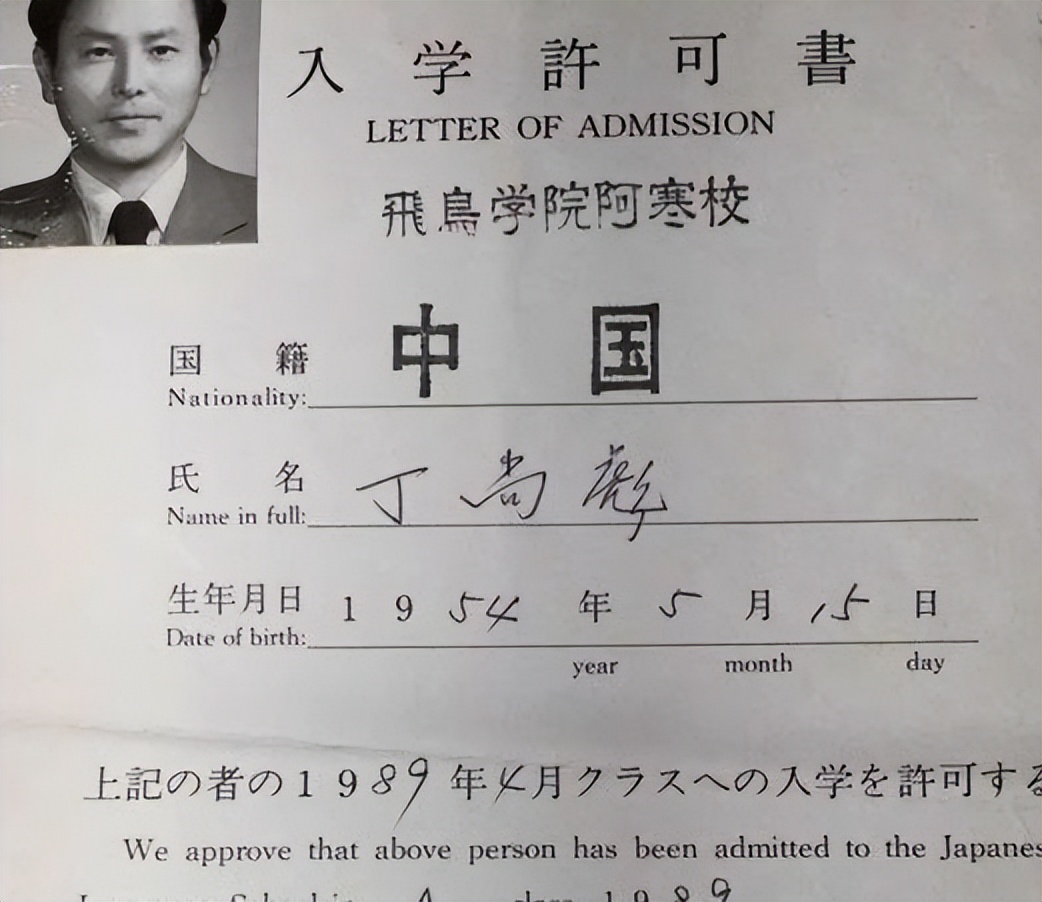 入学許可書
LETTER OF ADMISSION
飛鳥学院阿寒校
国籍 中国
Nationality:
氏名 丁尚彪
Name in full:
生年月日 1954年5月15日
Date of birth:
year month day
上記の者の1989年4月クラスへの入学を許可する
We approve that above person has been admitted to the Japanes
4 class 1989